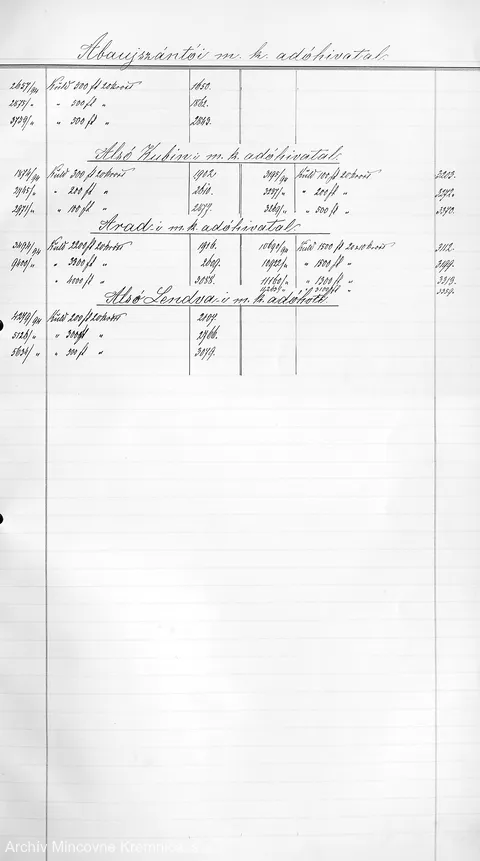 Abaujszántói m. k. adóhivatal.
2657/94 Küld 300 ft 20kros 1650.
2873/" " 300 ft " 1862.
3739/" " 300 ft " 2843.
Alsó Kubin-i m. k. adóhivatal.
1874/94 Küld 300 ft 20kros 1902. 3195/94 Küld 100 ft 20kros 3203.
2745/" " 200 ft " 2610. 3237/" " 200 ft " 3272.
2971/" " 100 ft " 2879. 3269/" " 500 ft " 3370.
Arad-i m. k. adóhivatal.
3494/94 Küld 2200 ft 20kros 1916. 10692/94 Küld 1500 ft 20kros 3112.
9400/" " 3200 ft " 2609. 10922/" " 1500 ft " 3199.
" 4000 ft " 3058. 11160/" " 1300 ft " 3313.
3359.
Alsó Lendva-i m. k. adóhiv.
4279/94 Küld 200 ft 20kros 2107.
5128/" " 300 ft " 2766.
5634/" " 300 ft " 3079.
Archív Mincovne Kremnica